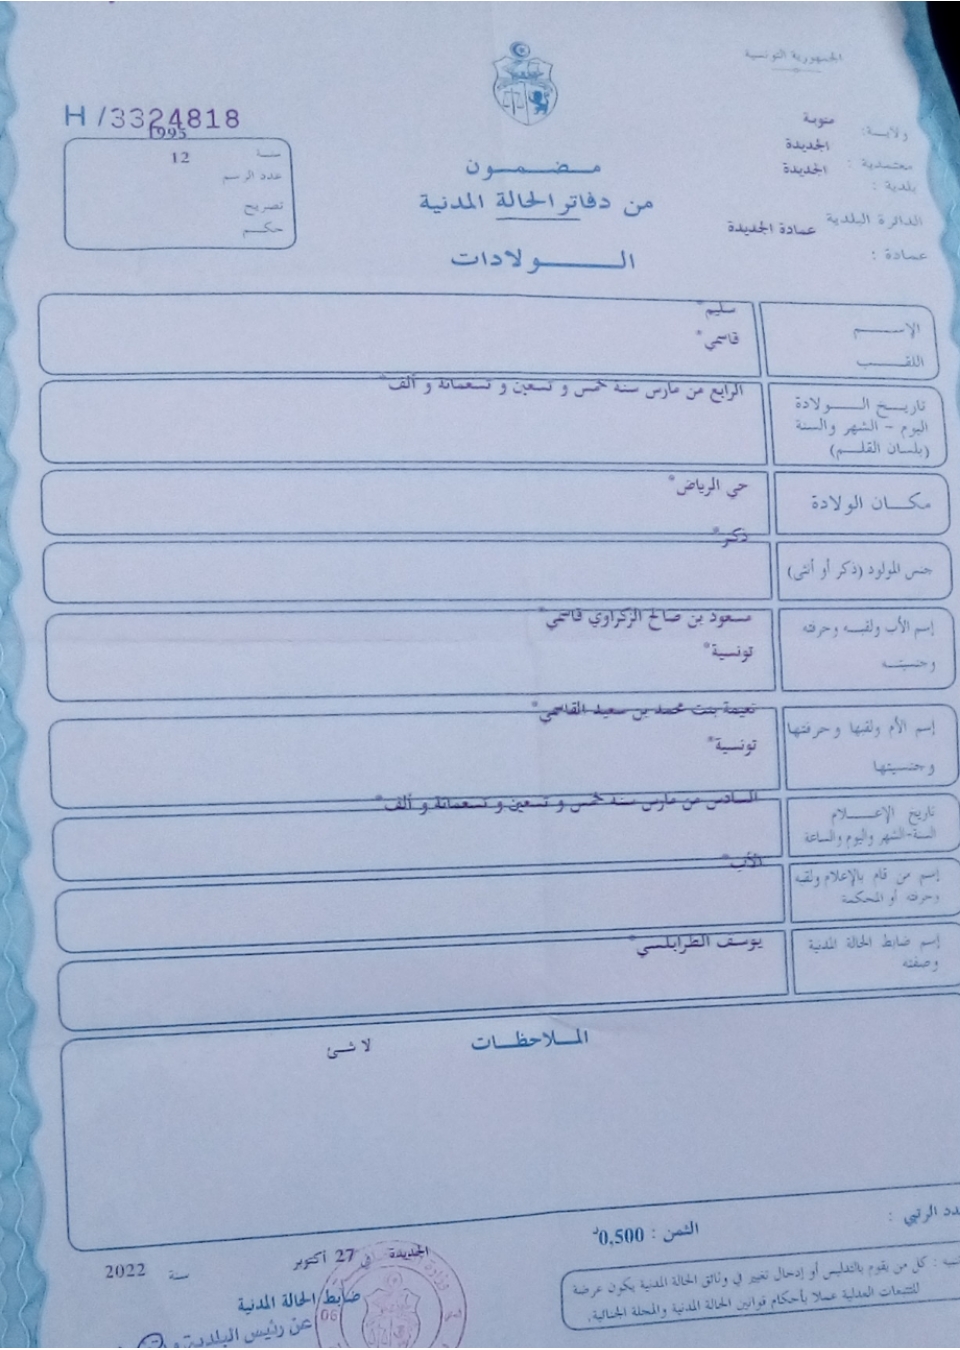 الجمهورية التونسية
ولاية: منوبة
معتمدية: الجديدة
بلدية: الجديدة
الدائرة البلدية
عمادة: عمادة الجديدة
H /3324818
سنة 1995
عدد الرسم 12
تصريح
حكم
مضمون
من دفاتر الحالة المدنية
الولادات
الإسم سليم*
اللقب قاسمي*
تاريخ الولادة الرابع من مارس سنة خمس و تسعين و تسعمائة و ألف*
اليوم - الشهر والسنة
(بلسان القلم)
مكان الولادة حي الرياض*
جنس المولود (ذكر أو أنثى) ذكر*
إسم الأب ولقبه وحرفته مسعود بن صالح الزكراوي قاسمي*
وجنسيته تونسية*
إسم الأم ولقبها وحرفتها نعيمة بنت محمد بن سعيد القاسمي*
وجنسيتها تونسية*
تاريخ الإعلام السادس من مارس سنة خمس و تسعين و تسعمائة و ألف*
السنة-الشهر واليوم والساعة
إسم من قام بالإعلام ولقبه الأب*
وحرفته أو المحكمة
إسم ضابط الحالة المدنية يوسف الطرابلسي*
وصفته
الملاحظات
لا شئ
الرتبي :
الثمن : 0,500د
كل من يقوم بالتدليس أو إدخال تغيير في وثائق الحالة المدنية يكون عرضة
للتتبعات العدلية عملا بأحكام قوانين الحالة المدنية والمجلة الجنائية.
الجديدة في 27 أكتوبر سنة 2022
ضابط الحالة المدنية
عن رئيس البلدية
06